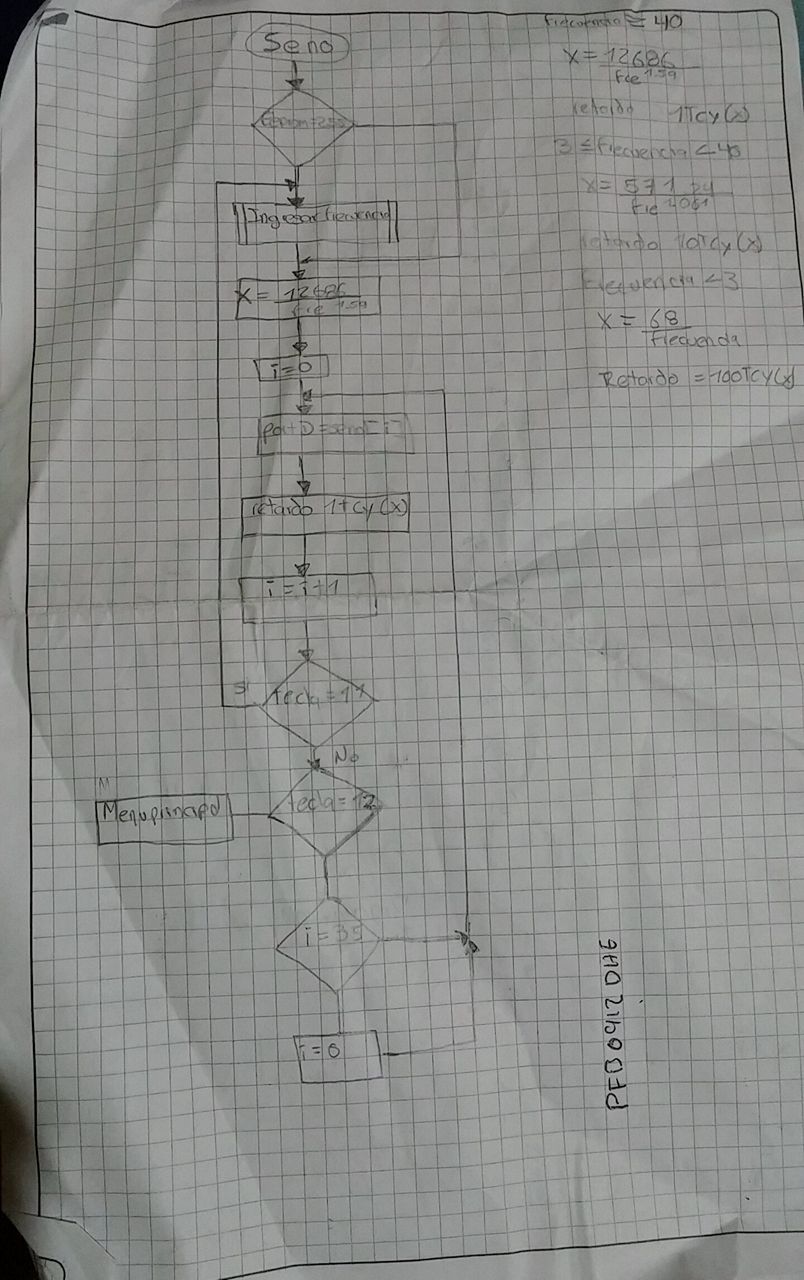 Seno
Ingresar frecuencia
X = 12686
i=0
PortD=seno[i]
retardo 1Tcy(x)
i = i+1
Si
tecla=11
No
tecla=12
M
Menu principal
i = 35
i=0
frecuencia ≥ 40
X = 12686
fre^1.59
retardo 1Tcy(x)
3 ≤ frecuencia < 40
X = 571
retardo 10Tcy(x)
frecuencia <3
X = 68
frecuencia
Retardo = 100TCY(x)